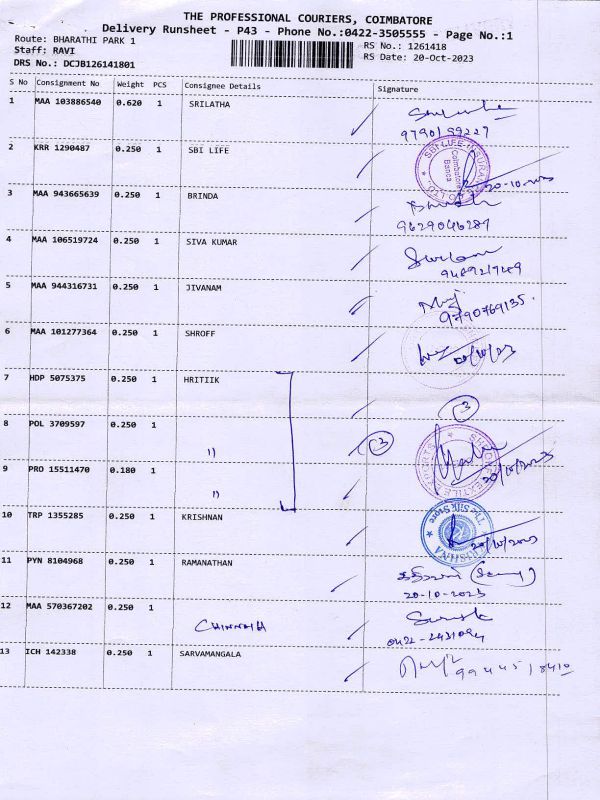 THE PROFESSIONAL COURIERS, COIMBATORE
Delivery Runsheet - P43 - Phone No.:0422-3505555 - Page No.:1
Route: BHARATHI PARK 1 RS No.: 1261418
Staff: RAVI RS Date: 20-Oct-2023
DRS No.: DCJB126141801
S No Consignment No Weight PCS Consignee Details Signature
1 MAA 103886540 0.620 1 SRILATHA
2 KRR 1290487 0.250 1 SBI LIFE
Coimbatore
20-10-2023
3 MAA 943665639 0.250 1 BRINDA
9629046287
4 MAA 106519724 0.250 1 SIVA KUMAR
5 MAA 944316731 0.250 1 JIVANAM
9790769135.
6 MAA 101277364 0.250 1 SHROFF
20/10/23
7 HDP 5075375 0.250 1 HRITIIK
3
8 POL 3709597 0.250 1 " 3
9 PRO 15511470 0.180 1 "
20/10/2023
10 TRP 1355285 0.250 1 KRISHNAN
The Silk Store
KRISHNA
20/10/2023
11 PYN 8104968 0.250 1 RAMANATHAN
20-10-2023
12 MAA 570367202 0.250 1 CHINNAIH
13 ICH 142338 0.250 1 SARVAMANGALA
9944518410